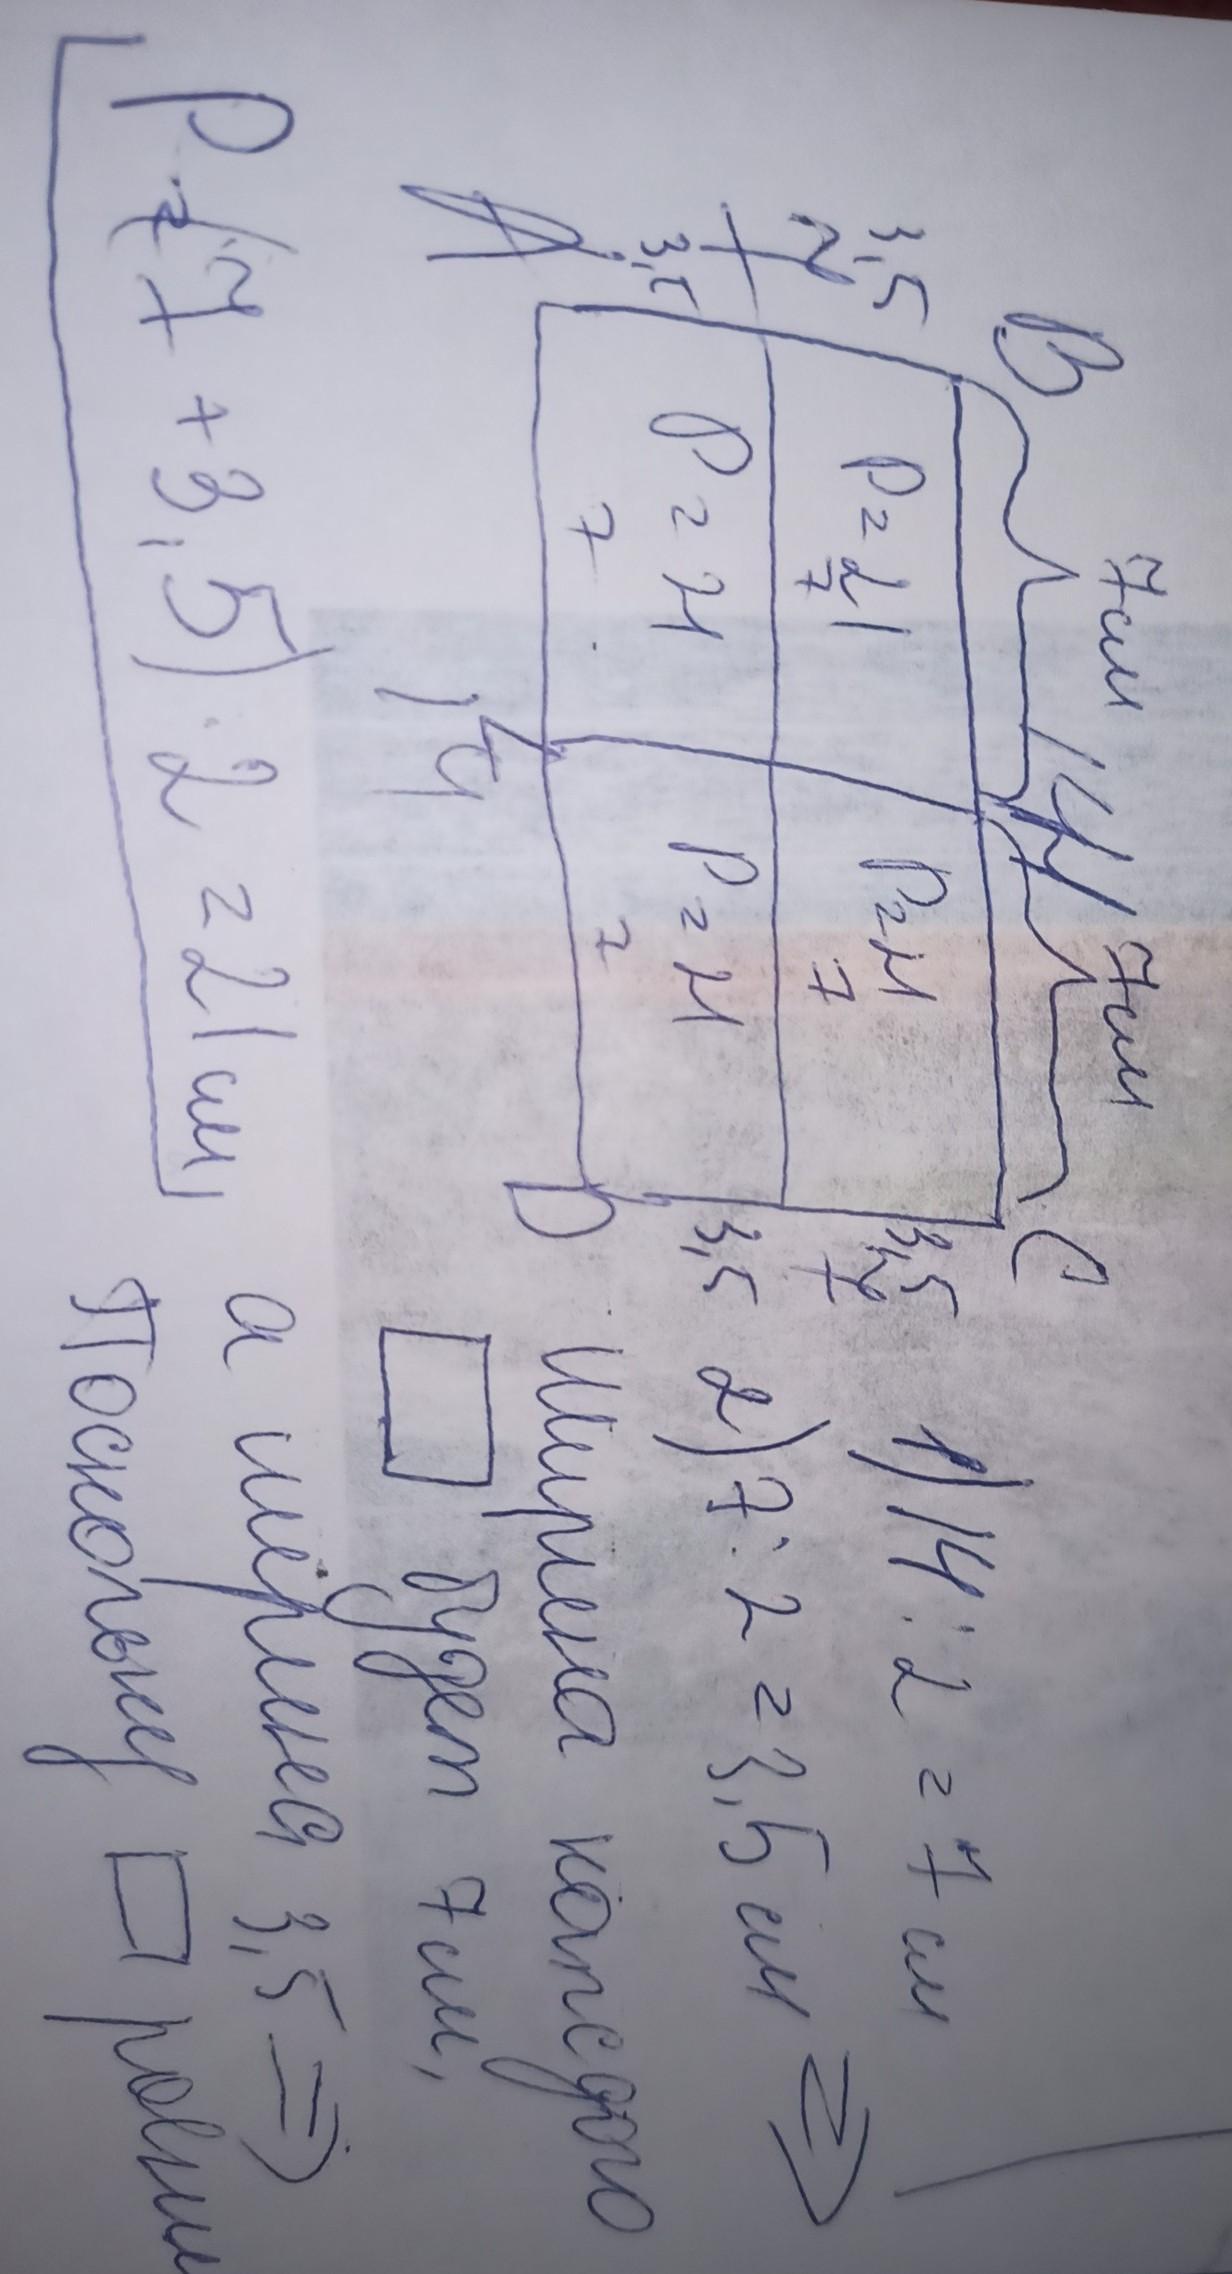 B 7см 14 7см C
3,5 P=21 P=21 3,5
7 7 7 7
3,5 P=21 P=21 3,5
7 7
A 14 D
1) 14:2=7 см
2) 7:2=3,5 см ⇒
Ширина каждого
□ будет 7см,
а ширина 3,5 ⇒
Поскольку □ равны
P=(7+3,5)·2=21см